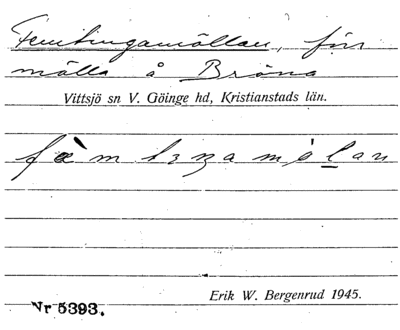 Femtingamöllan, för
mölla å Bröna
Vittsjö sn V. Göinge hd, Kristianstads län.
fæ̀mtıŋamölan
Erik W. Bergenrud 1945.
Nr 5393.